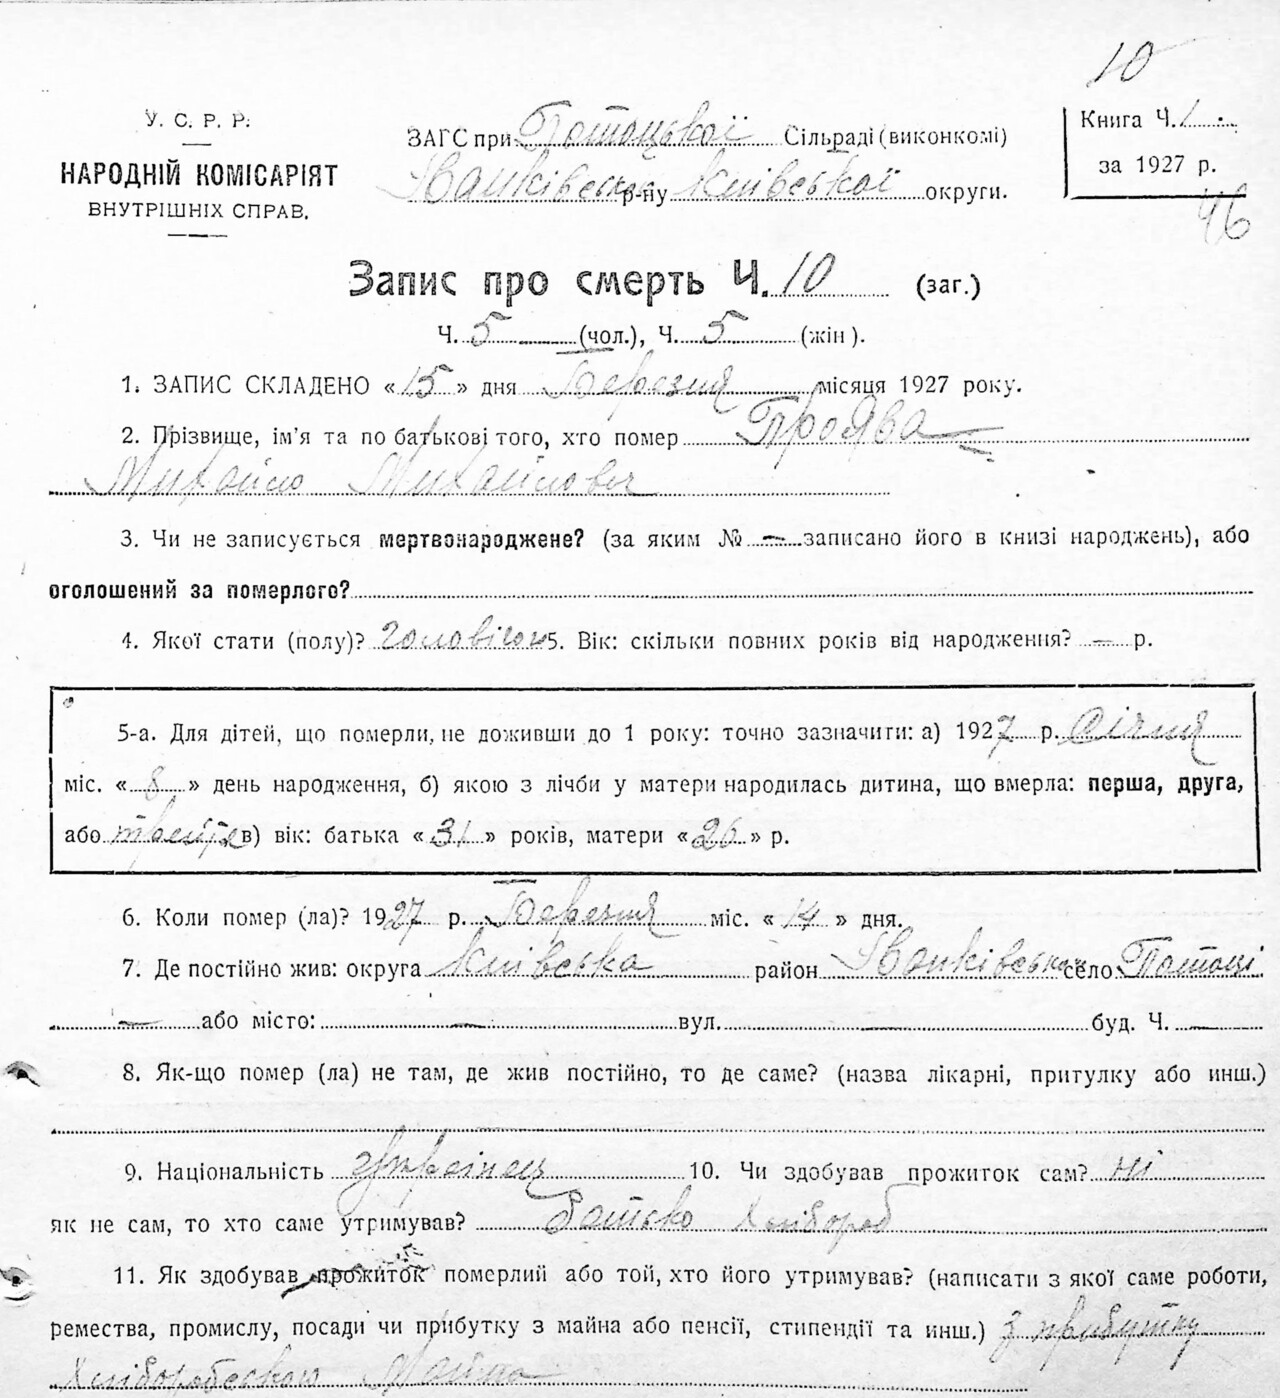 10
У. С. Р. Р.
НАРОДНІЙ КОМІСАРІЯТ
ВНУТРІШНІХ СПРАВ.
ЗАГС при Потоцької Сільраді (виконкомі)
Іванківськ р-ну Київської округи.
Книга Ч. 1
за 1927 р.
46
Запис про смерть Ч. 10 (заг.)
Ч. 5 (чол.), Ч. 5 (жін).
1. ЗАПИС СКЛАДЕНО «15» дня Березня місяця 1927 року.
2. Прізвище, ім'я та по батькові того, хто помер Проява
Михайло Михайлович
3. Чи не записується мертвонароджене? (за яким № — записано його в книзі народжень), або
оголошений за померлого?
4. Якої стати (полу)? чоловічої 5. Вік: скільки повних років від народження? — р.
5-а. Для дітей, що померли, не доживши до 1 року: точно зазначити: а) 1927 р. Січня
міс. «8» день народження, б) якою з лічби у матери народилась дитина, що вмерла: перша, друга,
або третя в) вік: батька «31» років, матери «26» р.
6. Коли помер (ла)? 1927 р. Березня міс. «14» дня.
7. Де постійно жив: округа Київська район Іванківськ село Потоці
— або місто: — вул. — буд. Ч. —
8. Як-що помер (ла) не там, де жив постійно, то де саме? (назва лікарні, притулку або инш.)
9. Національність Українец 10. Чи здобував прожиток сам? ні
як не сам, то хто саме утримував? батько хлібороб
11. Як здобував прожиток померлий або той, хто його утримував? (написати з якої саме роботи,
ремества, промислу, посади чи прибутку з майна або пенсії, стипендії та инш.) З прибутку
Хліборобського Майна